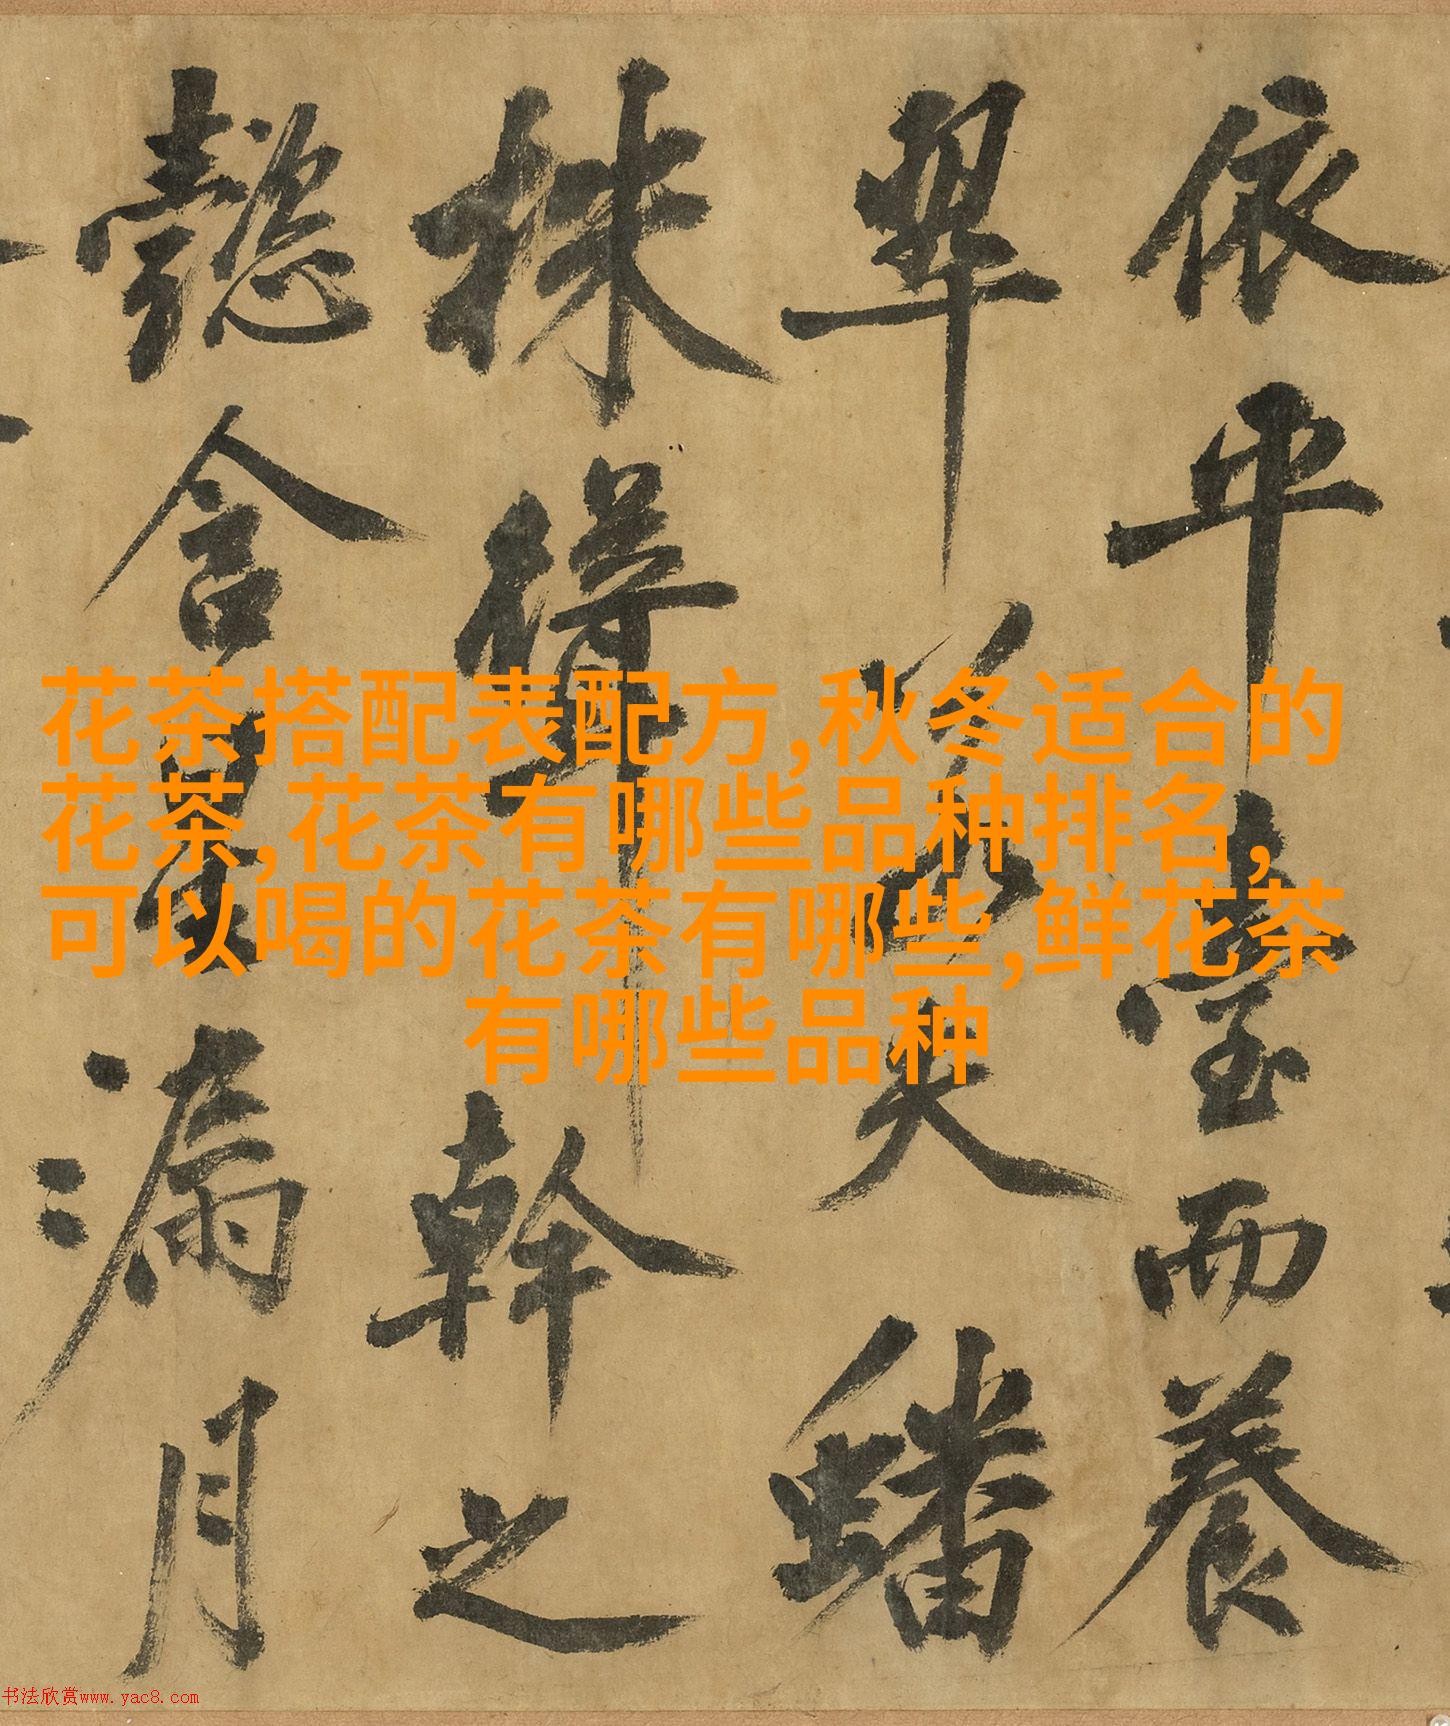 依平臺而養
翠夫蟠
株幹之
懿含星漏月
花茶搭配表配方,秋冬适合的
花茶,花茶有哪些品种排名,
可以喝的花茶有哪些,鲜花茶
有哪些品种
书法欣赏www.yac8.com